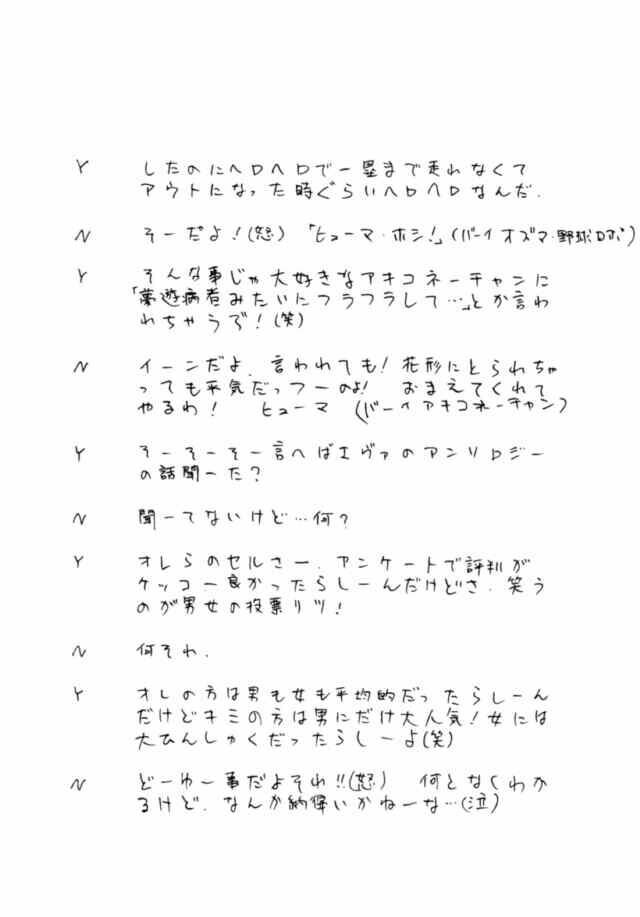 Y したのにヘロヘロで一塁まで走れなくて
アウトになった時ぐらいヘロヘロなんだ.
N そーだよ!(怒) 「ヒューマ・ホシ!」(バーイ オズマ・野球ロボ)
Y そんな事じゃ大好きなアキコネーチャンに
「夢遊病者みたいにフラフラして…」とか言わ
れちゃうぞ!(笑)
N イーンだよ.言われても!花形にとられちゃ
っても平気だっつーのよ! おまえてくれて
やるわ! ヒューマ (バーイアキコネーチャン)
Y そーそーそー言へばエヴァのアンソロジー
の話聞ーた?
N 聞ーてないけど…何?
Y オレらのセルさー.アンケートで評判が
ケッコー良かったらしーんだけどさ.笑う
のが男女の投票リツ!
N 何それ.
Y オレの方は男も女も平均的だったらしーん
だけどキミの方は男にだけ大人気!女には
大ひんしゅくだったらしーよ(笑)
N どーゆー事だよそれ!!(怒) 何となくわか
るけど.なんか納得いかねーな…(泣)